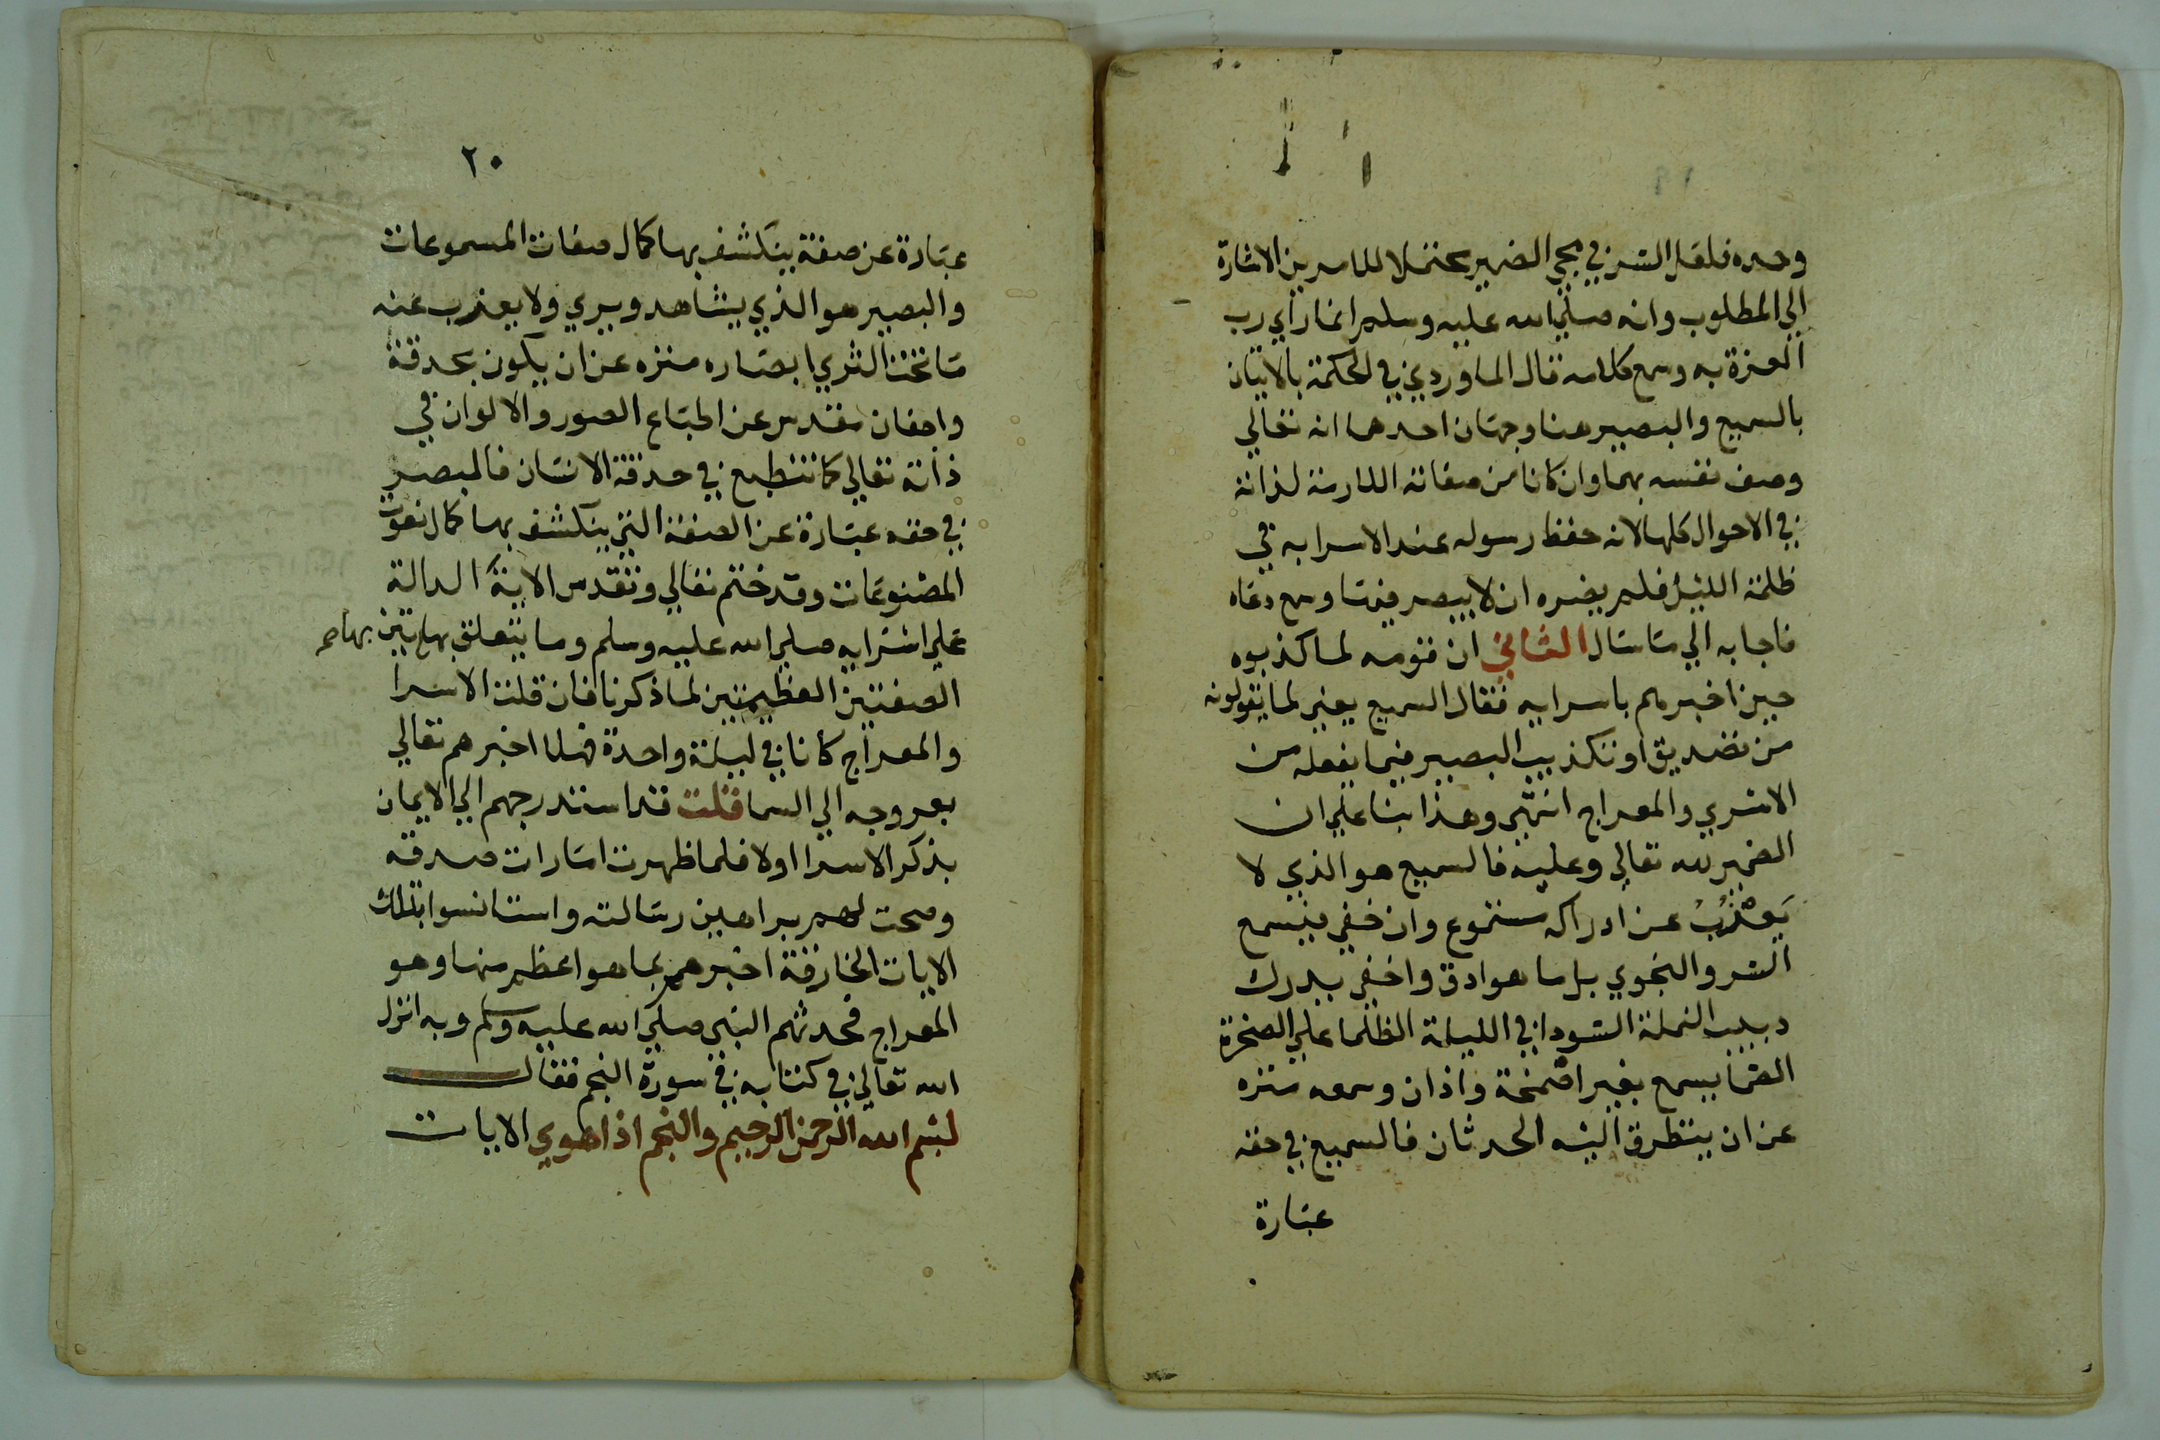 وحده فلعل السر في مجي الضمير محتملا للامرين الاشارة
الي المطلوب وانه صلي الله عليه وسلم انما راي رب
العزة به وسمع كلامه قال الماوردي في الحكمة بالاتيان
بالسميع والبصير هنا وجهان احدهما انه تعالي
وصف نفسه بهما وان كانا من صفاته اللازمة لذاته
في الاحوال كلها لانه حفظ رسوله عند الاسرا به في
ظلمة الليل فلم يضره ان لا يبصر فيها وسمع دعاه
فاجابه الي ما سال الثاني ان قومه لما كذبوه
حين اخبرهم باسرايه فقال السميع يعني لما يقولونه
من تصديق او تكذيب البصير فيما يفعله من
الاسري والمعراج انتهي وهذا بنا علي ان
الضمير لله تعالي وعليه فالسميع هو الذي لا
يَعْزُبُ عن ادراكه مسموع وان خفي فيسمع
السر والنجوي بل ما هو ادق واخفي يدرك
دبيب النملة السودا في الليلة الظلما علي الصخرة
الصما يسمع بغير اصمخة واذان وسمعه منزه
عن ان يتطرق اليه الحدثان فالسميع في حقه
عبارة
٢٠
عبارة عن صفة ينكشف بها كمال صفات المسموعات
والبصير هو الذي يشاهد ويري ولا يعزب عنه
ما تحت الثري ابصاره منزه عن ان يكون بحدقة
واجفان مقدس عن انطباع الصور والالوان في
ذاته تعالي كما تنطبع في حدقة الانسان فالمبصر
في حقه عبارة عن الصفة التي ينكشف بها كمال نعوت
المصنوعات وقد ختم تعالي وتقدس الاية الدالة
علي اسرايه صلي الله عليه وسلم وما يتعلق بها بهاتين صح
الصفتين العظيمتين لما ذكرنا فان قلت الاسرا
والمعراج كانا في ليلة واحدة فهلا اخبرهم تعالي
بعروجه الي السما قلت قد استدرجهم الي الايمان
بذكر الاسرا اولا فلما ظهرت امارات صدقه
وصحت لهم براهين رسالته واستانسوا بتلك
الايات الخارقة اخبرهم بما هو اعظم منها وهو
المعراج فحدثهم النبي صلي الله عليه وسلم وبه انزل
الله تعالي في كتابه في سورة النجم فقال
بسم الله الرحمن الرحيم والنجم اذا هوي الايات